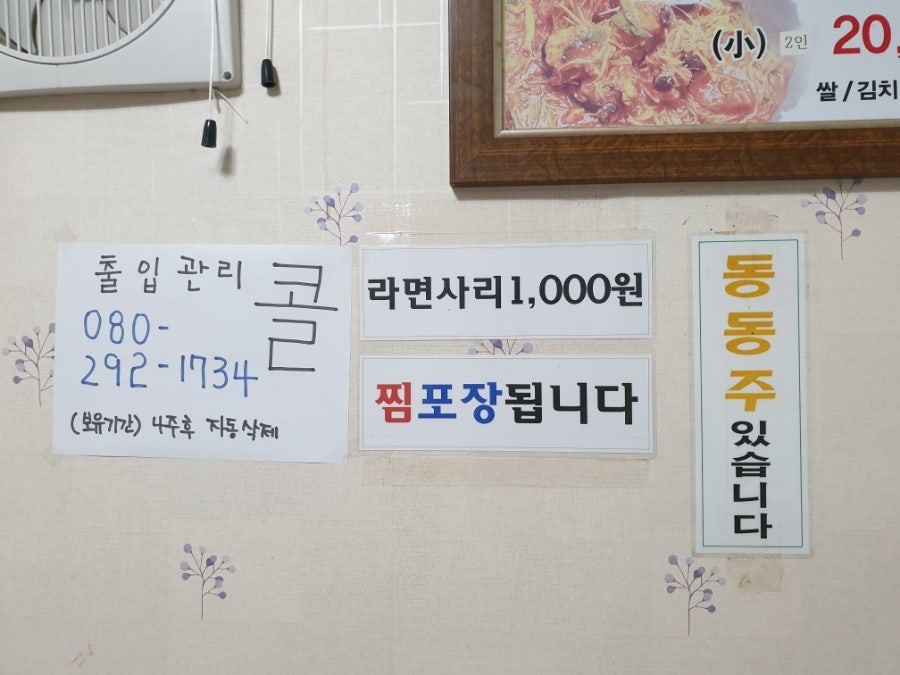 (小) 2인 20,
쌀/김치
출입관리 콜
080-
292-1734
(보유기간) 4주후 자동삭제
라면사리1,000원
찜포장됩니다
동동주있습니다